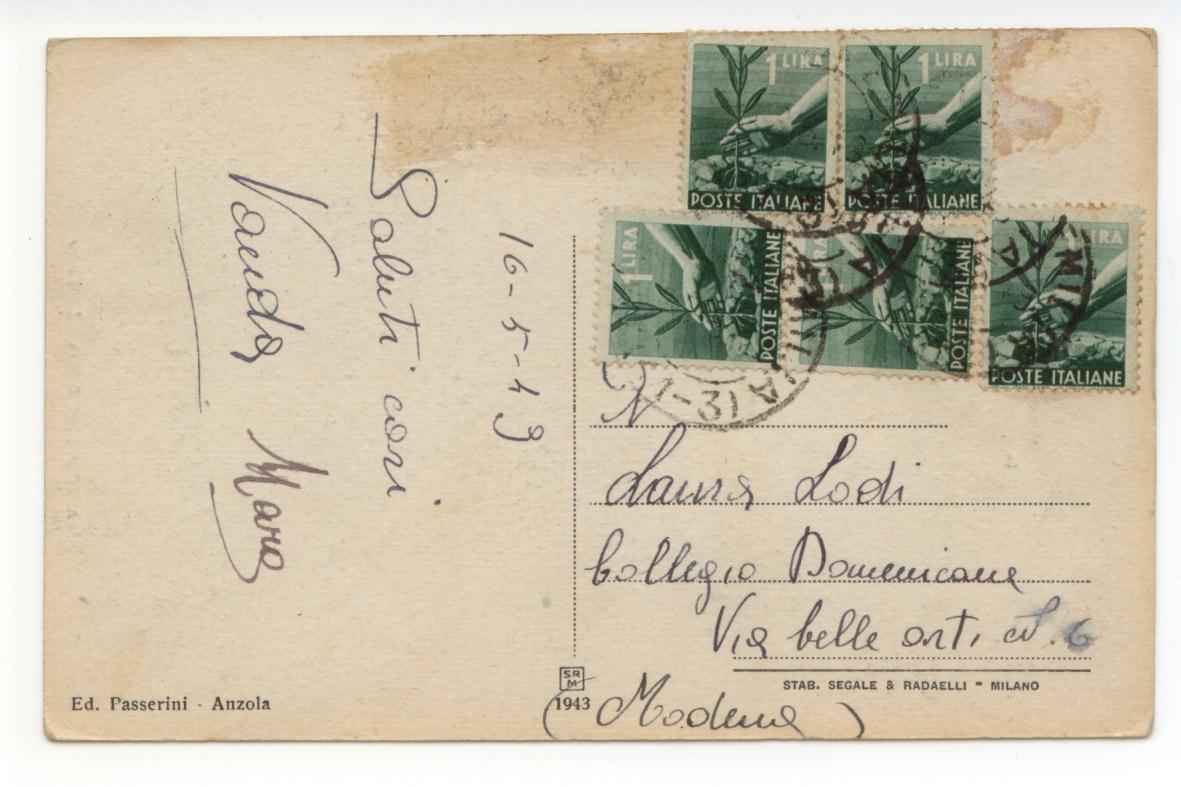 1 LIRA
POSTE ITALIANE
1 LIRA
POSTE ITALIANE
1 LIRA
POSTE ITALIANE
LIRA
POSTE ITALIANE
1 LIRA
POSTE ITALIANE
16-5-49
Saluti cari
Vanda
Mara
N
Laura Lodi
Collegio Domenicane
Via belle arti N. 6
(Modena)
STAB. SEGALE & RADAELLI - MILANO
SR
M
1943
Ed. Passerini - Anzola